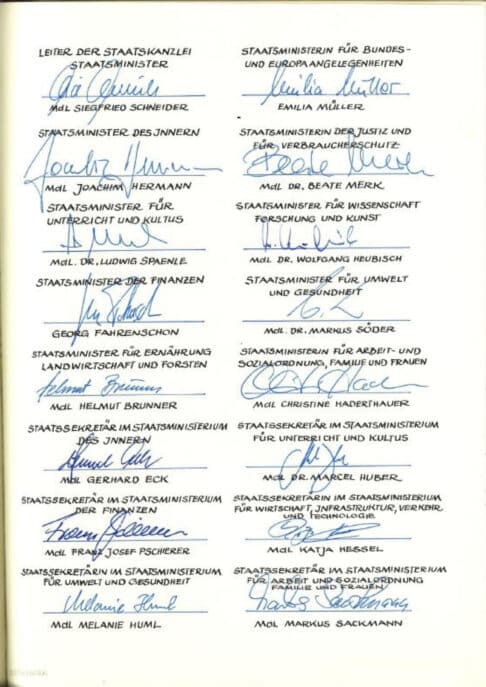 LEITER DER STAATSKANZLEI
STAATSMINISTER
MdL SIEGFRIED SCHNEIDER
STAATSMINISTERIN FÜR BUNDES-
UND EUROPAANGELEGENHEITEN
Emilia Müller
EMILIA MÜLLER
STAATSMINISTER DES INNERN
Joachim Herrmann
MdL JOACHIM HERMANN
STAATSMINISTERIN DER JUSTIZ UND
FÜR VERBRAUCHERSCHUTZ
Beate Merk
MdL DR. BEATE MERK
STAATSMINISTER FÜR
UNTERRICHT UND KULTUS
MdL. DR. LUDWIG SPAENLE
STAATSMINISTER FÜR WISSENSCHAFT
FORSCHUNG UND KUNST
MdL DR. WOLFGANG HEUBISCH
STAATSMINISTER DER FINANZEN
GEORG FAHRENSCHON
STAATSMINISTER FÜR UMWELT
UND GESUNDHEIT
MdL. DR. MARKUS SÖDER
STAATSMINISTER FÜR ERNÄHRUNG
LANDWIRTSCHAFT UND FORSTEN
Helmut Brunner
MdL HELMUT BRUNNER
STAATSMINISTERIN FÜR ARBEIT- UND
SOZIALORDNUNG, FAMILIE UND FRAUEN
MdL CHRISTINE HADERTHAUER
STAATSSEKRETÄR IM STAATSMINISTERIUM
DES INNERN
MdL GERHARD ECK
STAATSSEKRETÄR IM STAATSMINISTERIUM
FÜR UNTERRICHT UND KULTUS
MdL DR. MARCEL HUBER
STAATSSEKRETÄR IM STAATSMINISTERIUM
DER FINANZEN
MdL FRANZ JOSEF PSCHIERER
STAATSSEKRETÄRIN IM STAATSMINISTERIUM
FÜR WIRTSCHAFT, INFRASTRUKTUR, VERKEHR
UND TECHNOLOGIE
MdL KATJA HESSEL
STAATSSEKRETÄRIN IM STAATSMINISTERIUM
FÜR UMWELT UND GESUNDHEIT
Melanie Huml
MdL MELANIE HUML
STAATSSEKRETÄR IM STAATSMINISTERIUM
FÜR ARBEIT UND SOZIALORDNUNG
FAMILIE UND FRAUEN
Markus Sackmann
MdL MARKUS SACKMANN